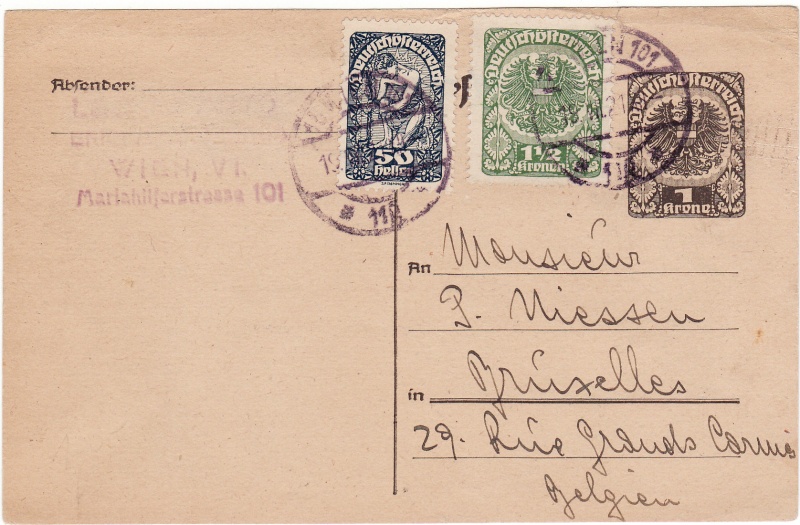 Absender:
WIEN, VI.
Mariahilferstrasse 101
Deutschösterreich
50
Heller
Deutschösterreich
1½
Kronen
Deutschösterreich
1
Krone
An
Monsieur
P. Niessen
Bruxelles
in
29. Rue Grands Carmes
Belgien